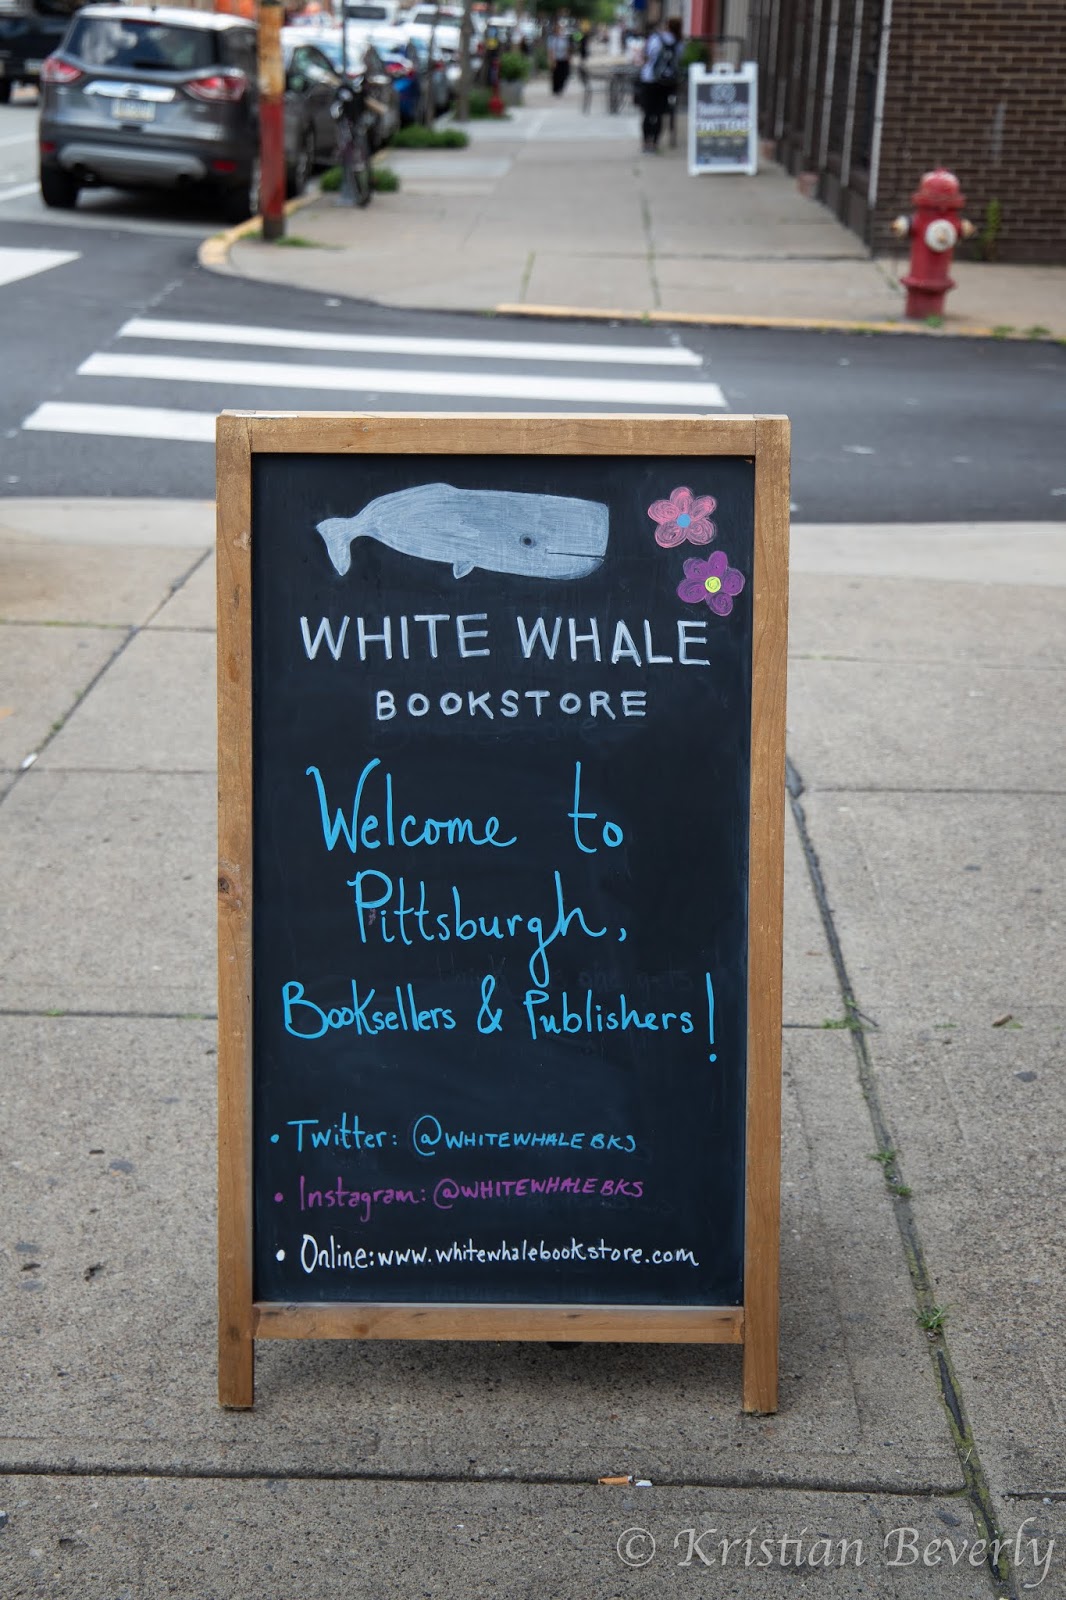 WHITE WHALE
BOOKSTORE
Welcome to
Pittsburgh,
Booksellers & Publishers!
• Twitter: @WHITEWHALEBKS
• Instagram: @WHITEWHALEBKS
• Online: www.whitewhalebookstore.com
© Kristian Beverly